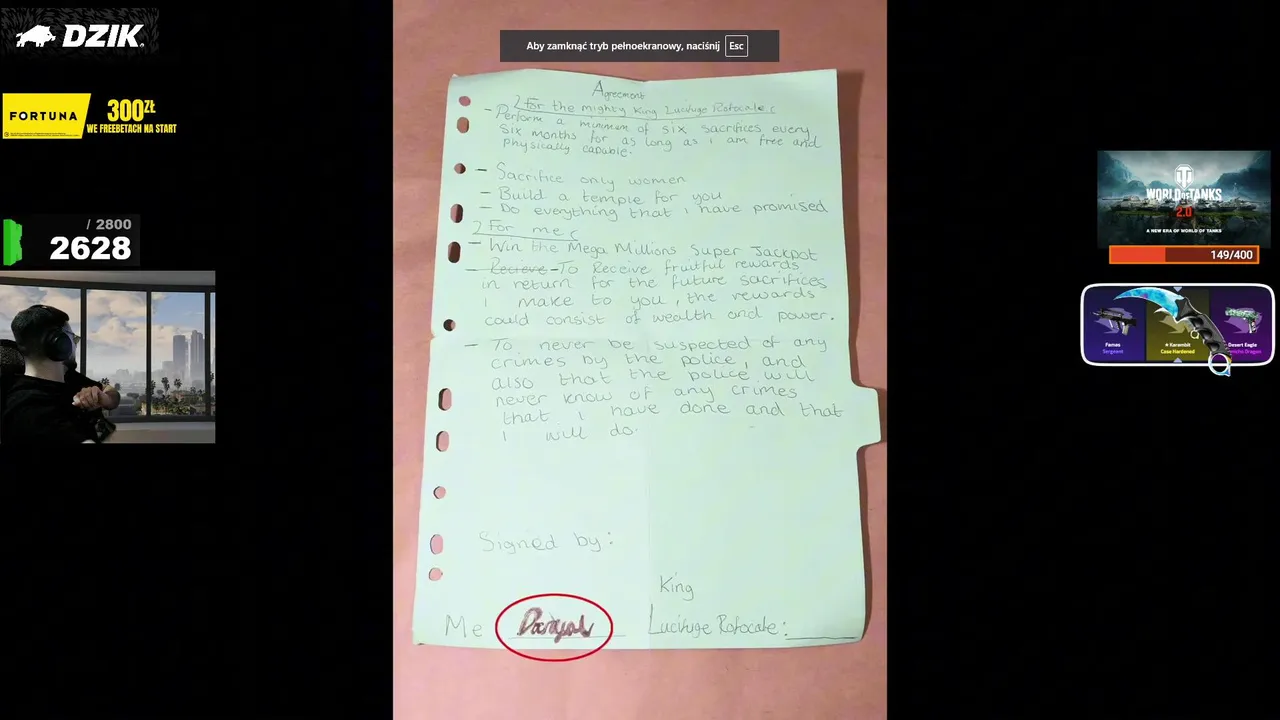 DZIK
Aby zamknąć tryb pełnoekranowy, naciśnij Esc
FORTUNA
300zł
WE FREEBETACH NA START
/ 2800
2628
WORLD OF TANKS
2.0
A NEW ERA OF WORLD OF TANKS
149/400
Famas
Sergeant
★ Karambit
Case Hardened
Desert Eagle
Dragon
Agreement
For the mighty King Lucifuge Rofocale
- Perform a minimum of six sacrifices every
six months for as long as i am free and
physically capable.
- Sacrifice only women
- Build a temple for you
- Do everything that i have promised
For me
- Win the Mega Millions Super Jackpot
- Recieve - To Receive fruitful rewards
in return for the future sacrifices
i make to you, the rewards
could consist of wealth and power.
- To never be suspected of any
crimes by the police, and
also that the police will
never know of any crimes
that i have done and that
i will do.
Signed by:
King
Me Danyal Lucifuge Rofocale: